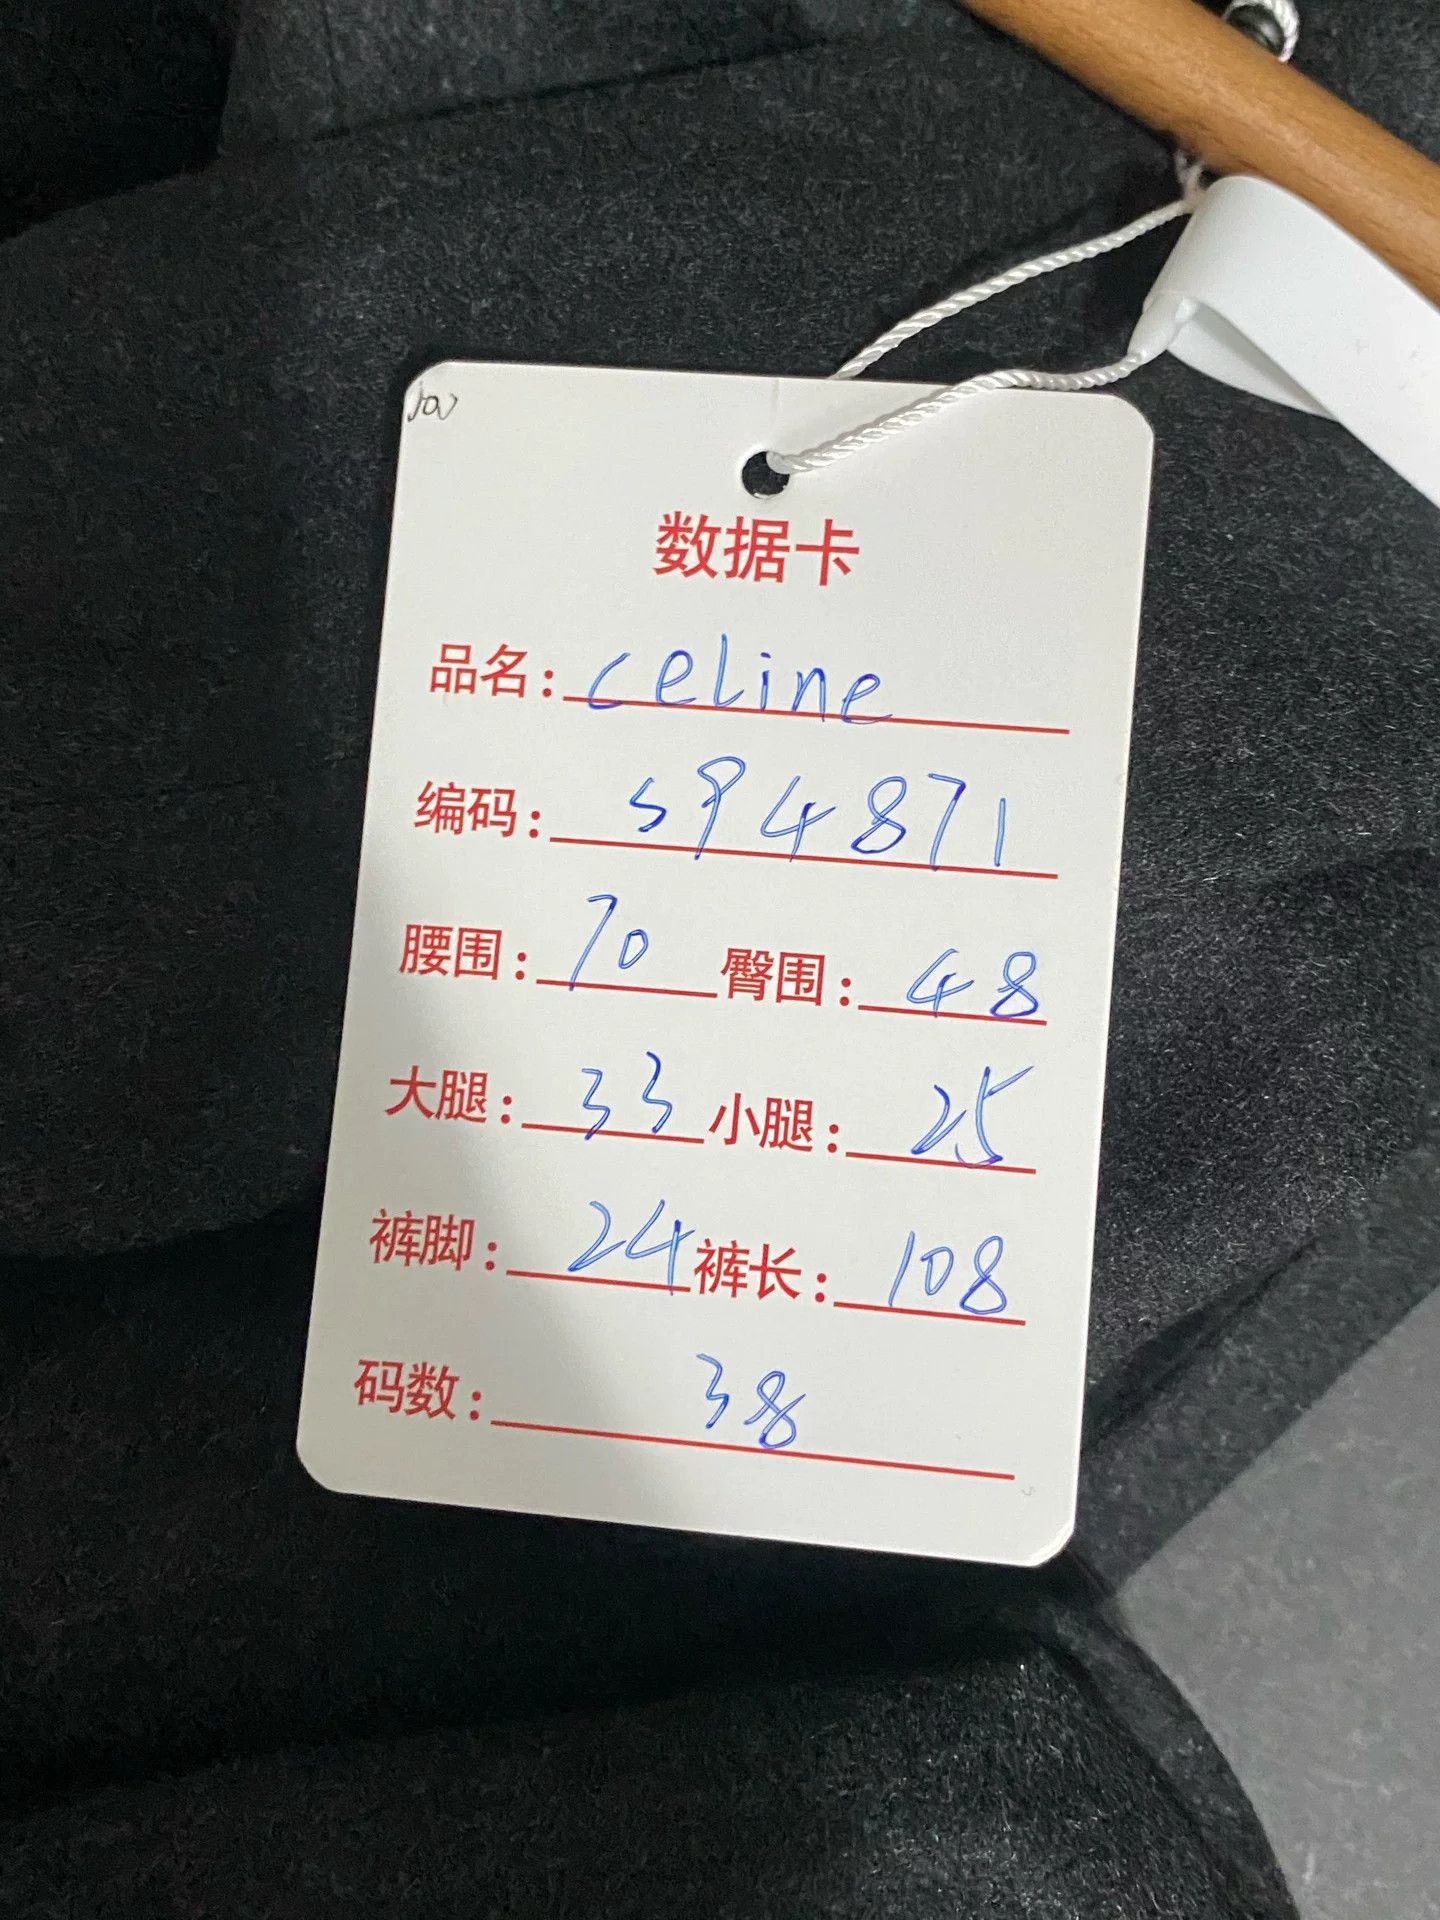 数据卡
品名: celine
编码: s94871
腰围: 70 臀围: 48
大腿: 33 小腿: 25
裤脚: 24 裤长: 108
码数: 38